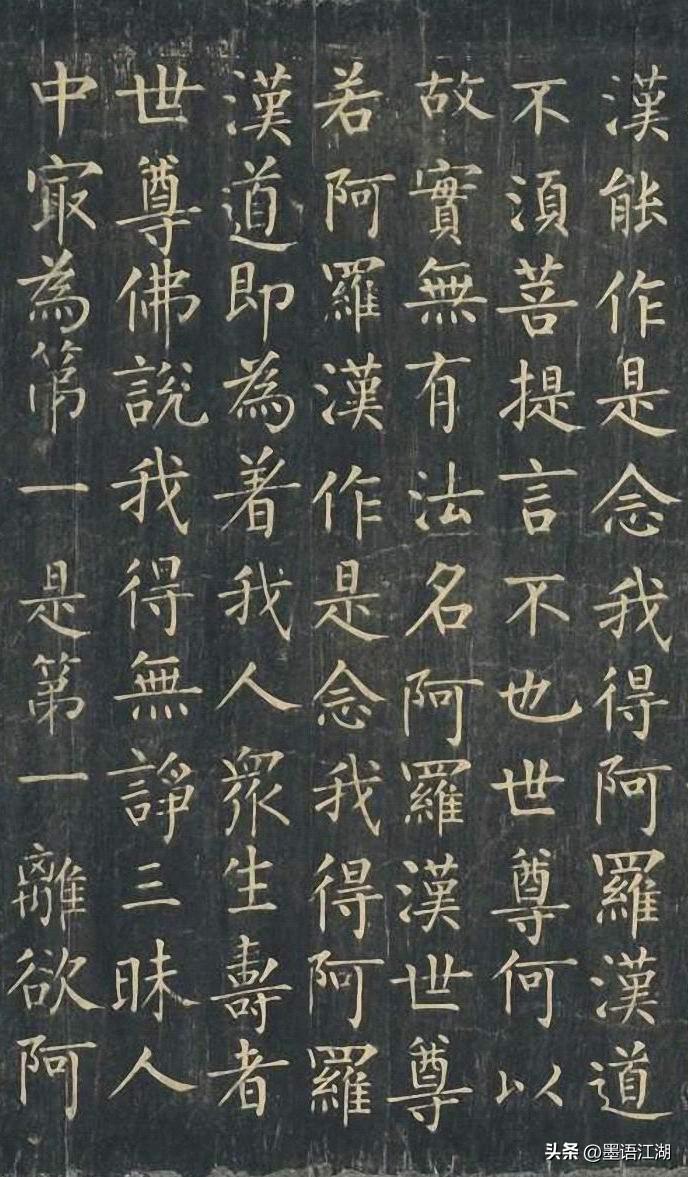 漢能作是念我得阿羅漢道
不須菩提言不也世尊何以
故實無有法名阿羅漢世尊
若阿羅漢作是念我得阿羅
漢道即為着我人眾生壽者
世尊佛說我得無諍三昧人
中㝡為第一是第一離欲阿
头条 @墨语江湖